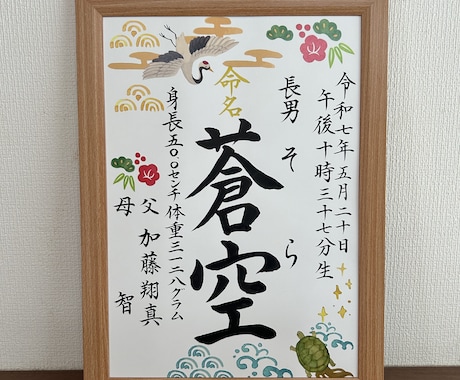 令和七年五月二十日
午後十時三十七分生
長男そら
命名
蒼空
身長五〇.〇センチ体重三一二八グラム
父 加藤翔真
母 智